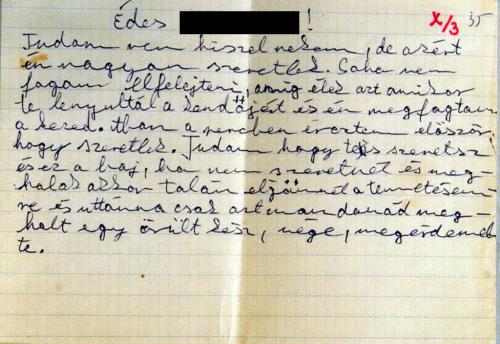 Édes !
X/3 35
Tudom nem hiszel nekem, de azért
én nagyon szeretlek. Soha nem
fogom elfelejteni, amig élek azt amikor
te lenyultál a kendőjért és én megfogtam
a kezed. Akkor éreztem először,
hogy szeretlek. Tudom hogy te is szeretsz
és ez a baj, ha nem szeretnél és meg-
halok akkor talán eljönnél a temetésem-
re és uttánna csak azt mondanád meg-
halt egy őrült kész, vége, megérdemel-
te.